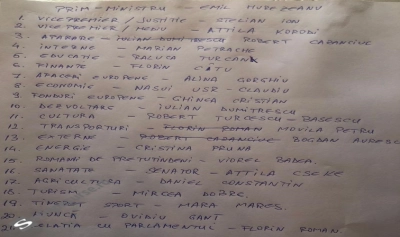 PRIM-MINISTRU - EMIL HUREZEANU
1. VICEPREMIER / JUSTITIE - STELIAN ION
2. VICEPREMIER / MEDIU - ATTILA KORODI
3. APARARE - IULIAN DUMITRESCU ROBERT CAZANCIUC
4. INTERNE - MARIAN PETRACHE
5. EDUCATIE - RALUCA TURCAN
6. FINANTE - FLORIN CITU
7. AFACERI EUROPENE - ALINA GORGHIU
8. ECONOMIE - NASUI USR - CLAUDIU
9. FONDURI EUROPENE - GHINEA CRISTIAN
10. DEZVOLTARE - IULIAN DUMITRESCU
11. CULTURA - ROBERT TURCESCU - BASESCU
12. TRANSPORTURI - FLORIN ROMAN MOVILA PETRU
13. EXTERNE - ROBERT CAZANCIUC - BOGDAN AURESCU
14. ENERGIE - CRISTINA PRUNA
15. ROMANII DE PRETUTINDENI - VIOREL BADEA
16. SANATATE - SENATOR - ATTILA CSEKE
17. AGRICULTURA - DANIEL CONSTANTIN
18. TURISM - MIRCEA DOBRE
19. TINERET SPORT - MARA MARES
20. MUNCA - OVIDIU GANT
RELATIA CU PARLAMENTUL - FLORIN ROMAN